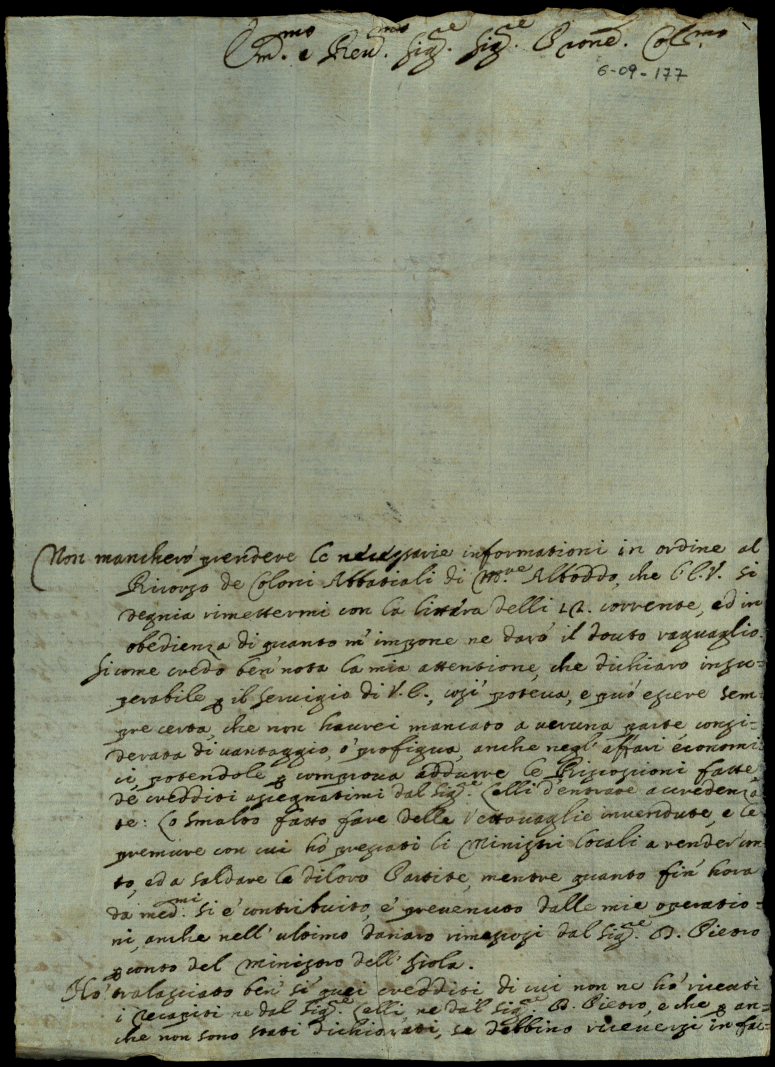 Em.mo e Reu.mo Sig.re Sig.re Prone. Col.mo
6-09-177
Non mancherò prendere le necessarie informationi in ordine al
Ricorso de Coloni Abbatiali di Altoddo, che l'E.V. si
degnia rimettermi con la littera delli 12. corrente, ed in
obedienza di quanto m'impone ne darò il douto raguaglio.
Sicome credo ben nota la mia attentione, che dichiaro insu-
perabile p il seruigio di V.E., così poteua, e può essere sem-
pre certa, che non haurei mancato a ueruna parte consi-
derata di uantaggio, ò profiguo, anche negl'affari economi
ci, potendole p comproua addurre le Riscossioni fatte
de crediti assegnatimi dal Sig.re Celli d'entrate a credenza
te: Lo smalto fatto fare delle Vettouaglie inuendute, e le
premure con cui hò pressati li Ministri locali a render con
to, ed a saldare le diloro Partite, mentre quanto fin'hora
da med.mi si è contribuito, è preuenuto dalle mie operatio-
ni, anche nell'ultimo danaro rimessosi dal Sig.re D. Pietro
p conto del Ministro dell'Isola.
Hò tralasciato ben sì quei crediti di cui non ne hò riceuti
i recapiti ne dal Sig.re Celli, ne dal Sig.re D. Pietro, e che p an-
che non sono stati dichiarati, se debbino riceuersi in fac-